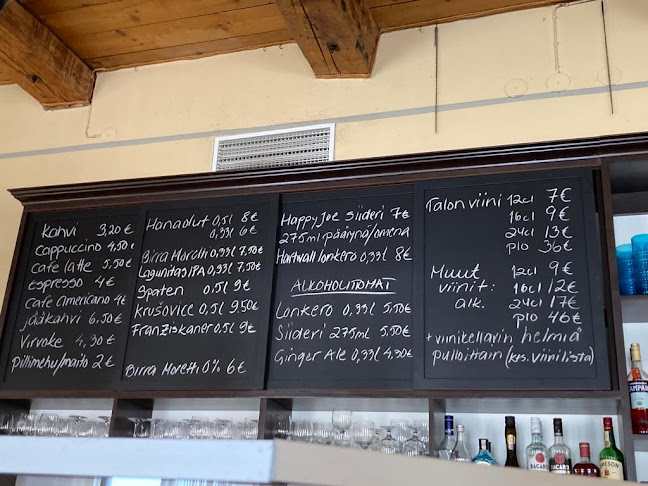 Kahvi 3,20 €
Cappuccino 4,50 €
Cafe latte 5,50€
espresso 4 €
Cafe americano 4€
jääkahvi 6,50€
Virvoke 4,30€
Pillimehu/maito 2€
Hanaolut 0,5l 8€
0,33l 6€
Birra Moretti 0,33l 7,50€
Lagunitas IPA 0,33l 7,50€
Spaten 0,5l 9€
Krušovice 0,5l 9,50€
Franziskaner 0,5l 9€
Birra Moretti 0% 6€
Happy Joe Siideri 7€
275ml päärynä/omena
Hartwall lonkero 0,33l 8€
ALKOHOLITTOMAT
Lonkero 0,33l 5,50€
Siideri 275ml 5,50€
Ginger Ale 0,33l 4,30€
Talon viini 12cl 7€
16cl 9€
24cl 13€
plo 36€
Muut viinit: alk. 12cl 9€
16cl 12€
24cl 17€
plo 46€
+ viinikellarin helmiä
pulloittain (kts. viinilista)
CAMPARI
BACARDI
JAMESON